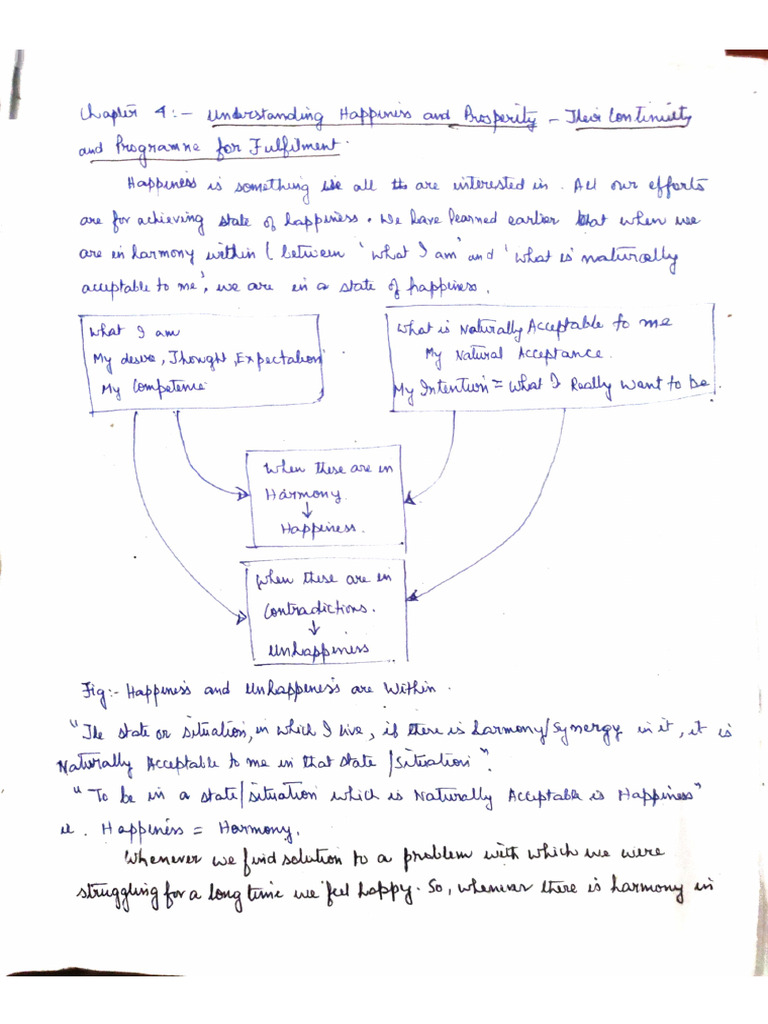 Chapter 4:- Understanding Happiness and Prosperity - Their Continuity
and Programme for Fulfilment.
Happiness is something we all are interested in. All our efforts
are for achieving state of happiness. We have learned earlier that when we
are in harmony within (between 'what I am' and 'what is naturally
acceptable to me', we are in a state of happiness.
What I am
My desire, Thought, Expectation
My Competence
What is Naturally Acceptable to me
My Natural Acceptance.
My Intention = What I Really Want to be.
When these are in
Harmony.
↓
Happiness.
When these are in
Contradictions.
↓
Unhappiness
Fig:- Happiness and Unhappiness are Within.
"The state or situation, in which I live, if there is harmony/synergy in it, it is
Naturally Acceptable to me in that state/situation".
"To be in a state/situation which is Naturally Acceptable is Happiness"
ie. Happiness = Harmony.
Whenever we find solution to a problem with which we were
struggling for a long time we feel happy. So, whenever there is harmony in